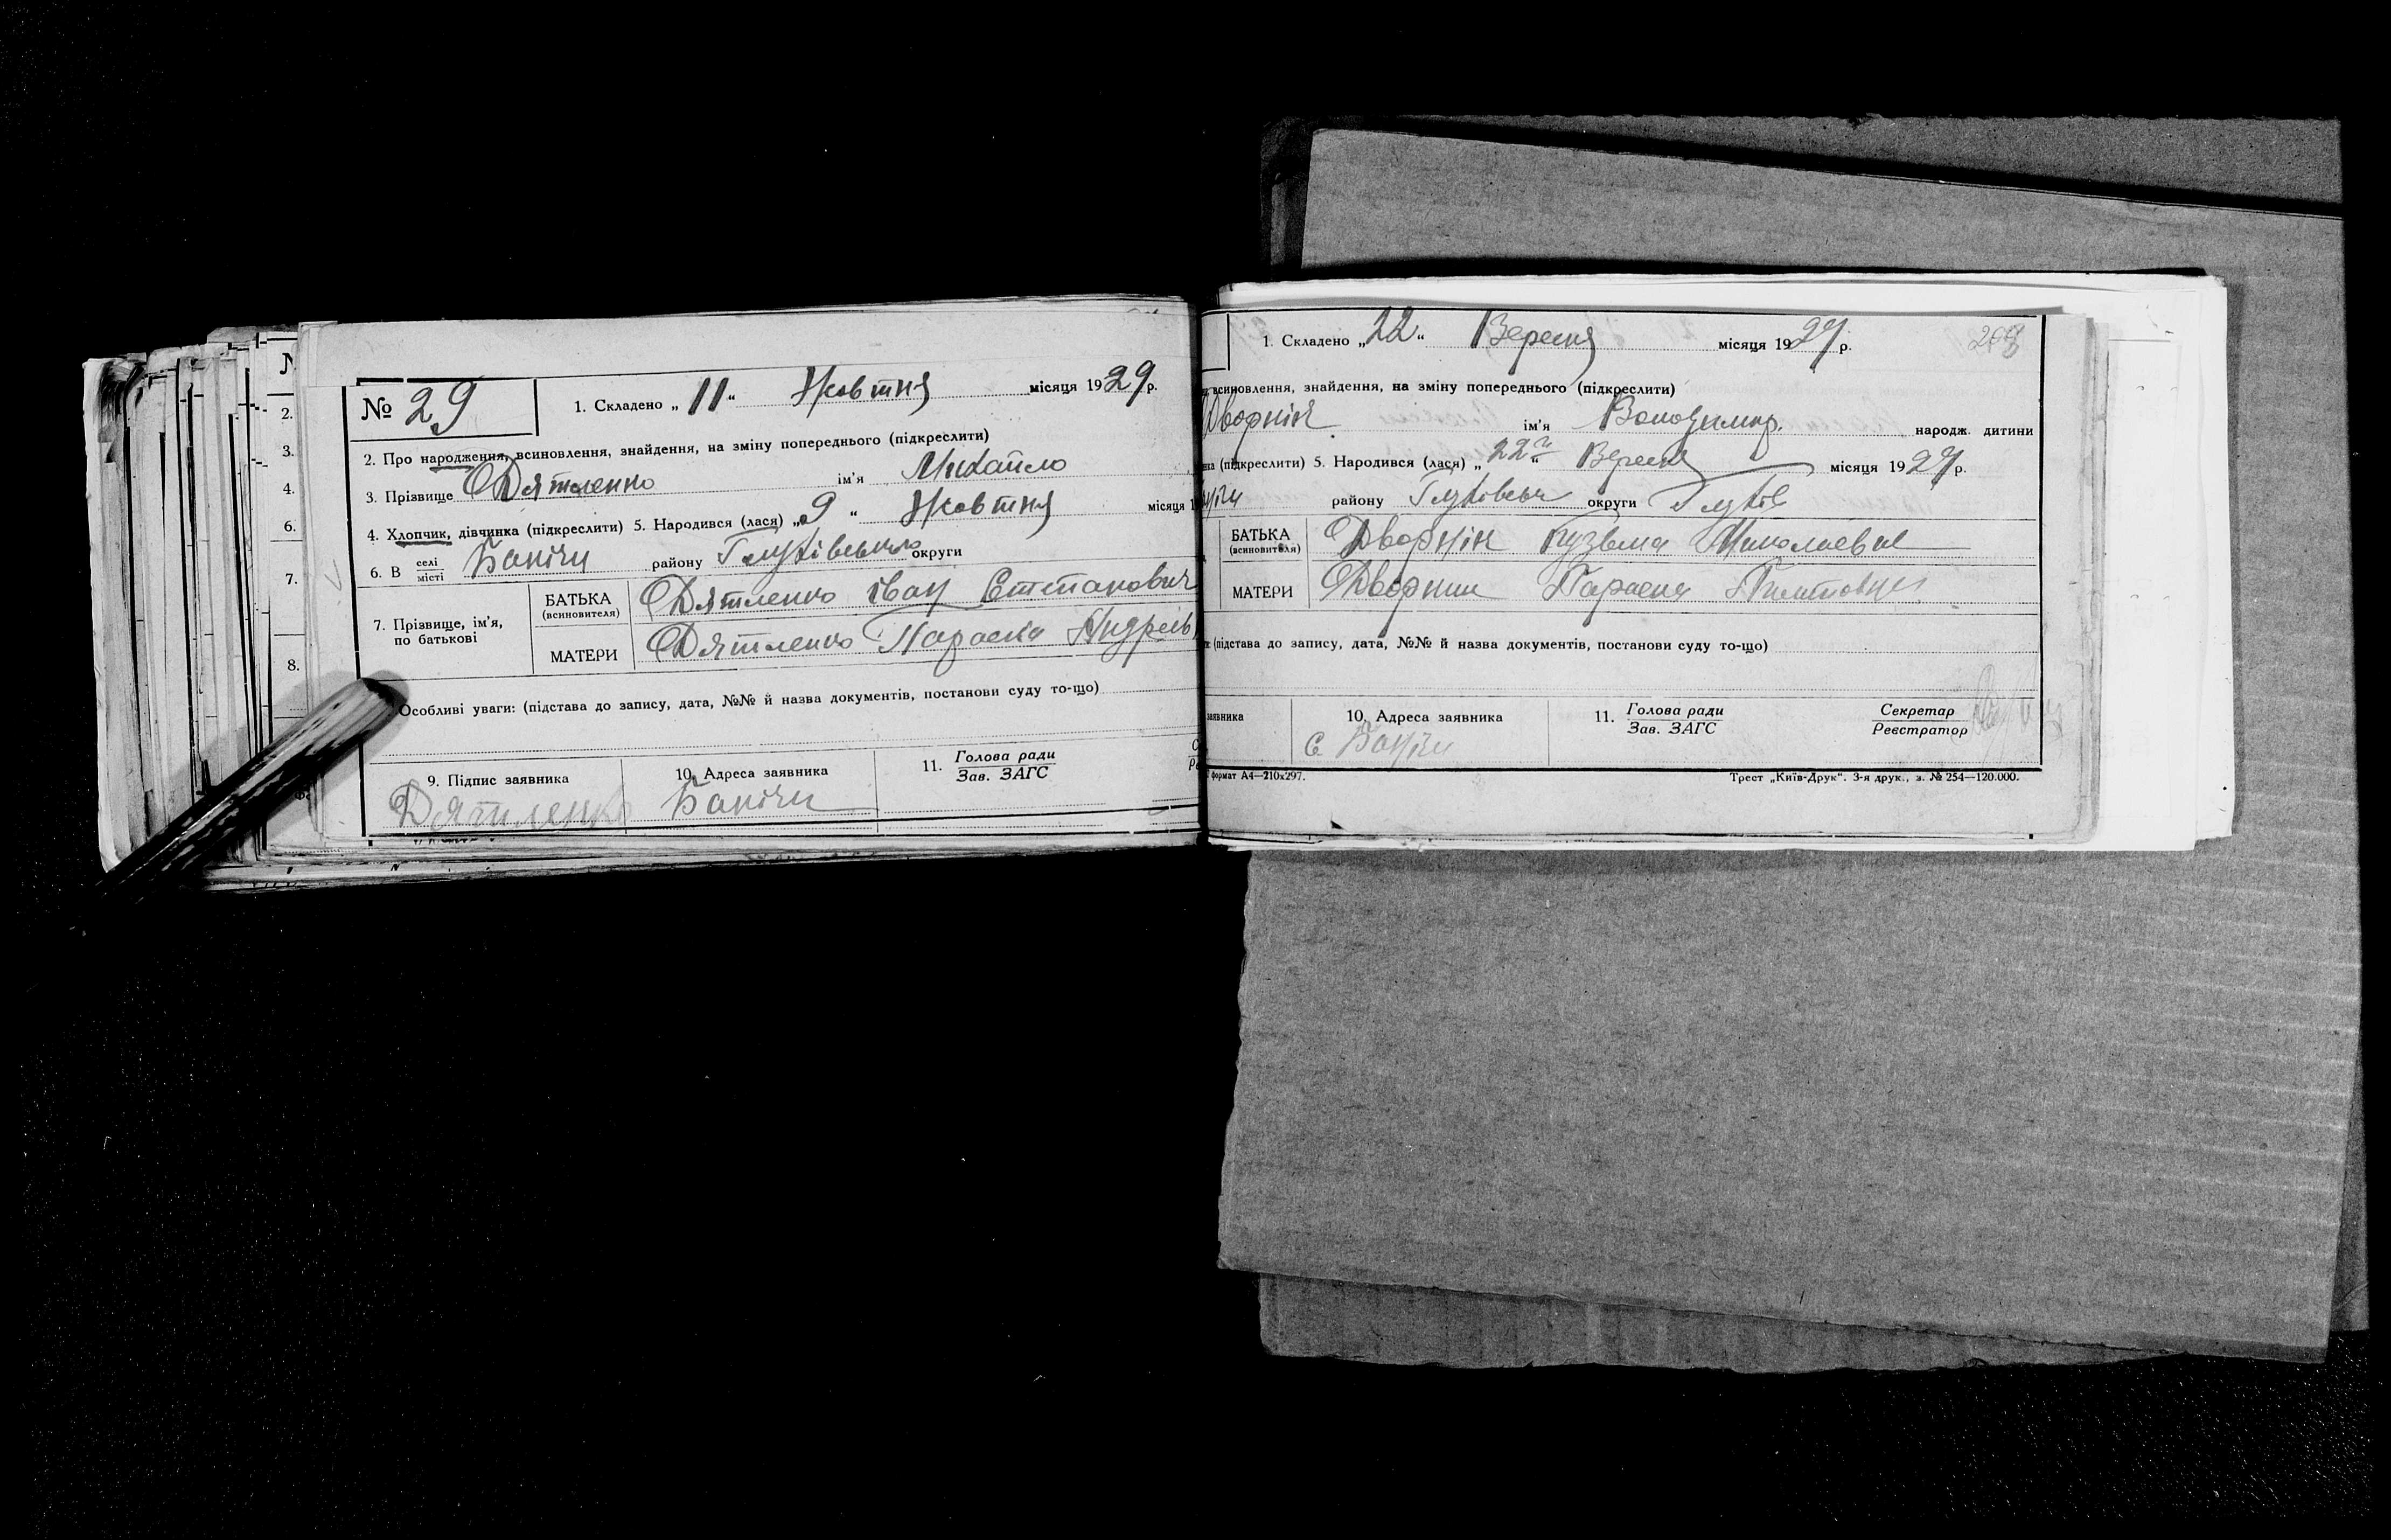 № 29
1. Складено „ 11 “ Жовтня місяця 1929 р.
2. Про народження, всиновлення, знайдення, на зміну попереднього (підкреслити)
3. Прізвище Дятленко ім'я Михайло
4. Хлопчик, дівчинка (підкреслити) 5. Народився (лася) „ 9 “ Жовтня місяця 1
6. В селі місті Баничи району Глухівського округи
7. Прізвище, ім'я, по батькові
БАТЬКА (всиновителя) Дятленко Іван Сттепанович
МАТЕРИ Дятленко Параска Андреів
Особливі уваги: (підстава до запису, дата, №№ й назва документів, постанови суду то-що)
9. Підпис заявника 10. Адреса заявника 11. Голова ради Зав. ЗАГС
Дятленко Баничи
2.
3.
4.
6.
7.
8.
1. Складено „ 22 “ Вересня місяця 1929 р.
всиновлення, знайдення, на зміну попереднього (підкреслити)
Дворнік ім'я Володимир. народж. дитини
(підкреслити) 5. Народився (лася) „ 22 “ Вересня місяця 1929 р.
району Глухівськ округи Глухів
БАТЬКА (всиновителя) Дворнік Кузьма Миколаевич
МАТЕРИ Дворник Параска
(підстава до запису, дата, №№ й назва документів, постанови суду то-що)
заявника 10. Адреса заявника 11. Голова ради Зав. ЗАГС Секретар Реєстратор
С. Баничи
формат А4—210х297. Трест „Київ-Друк“. 3-я друк., з. № 254—120.000.